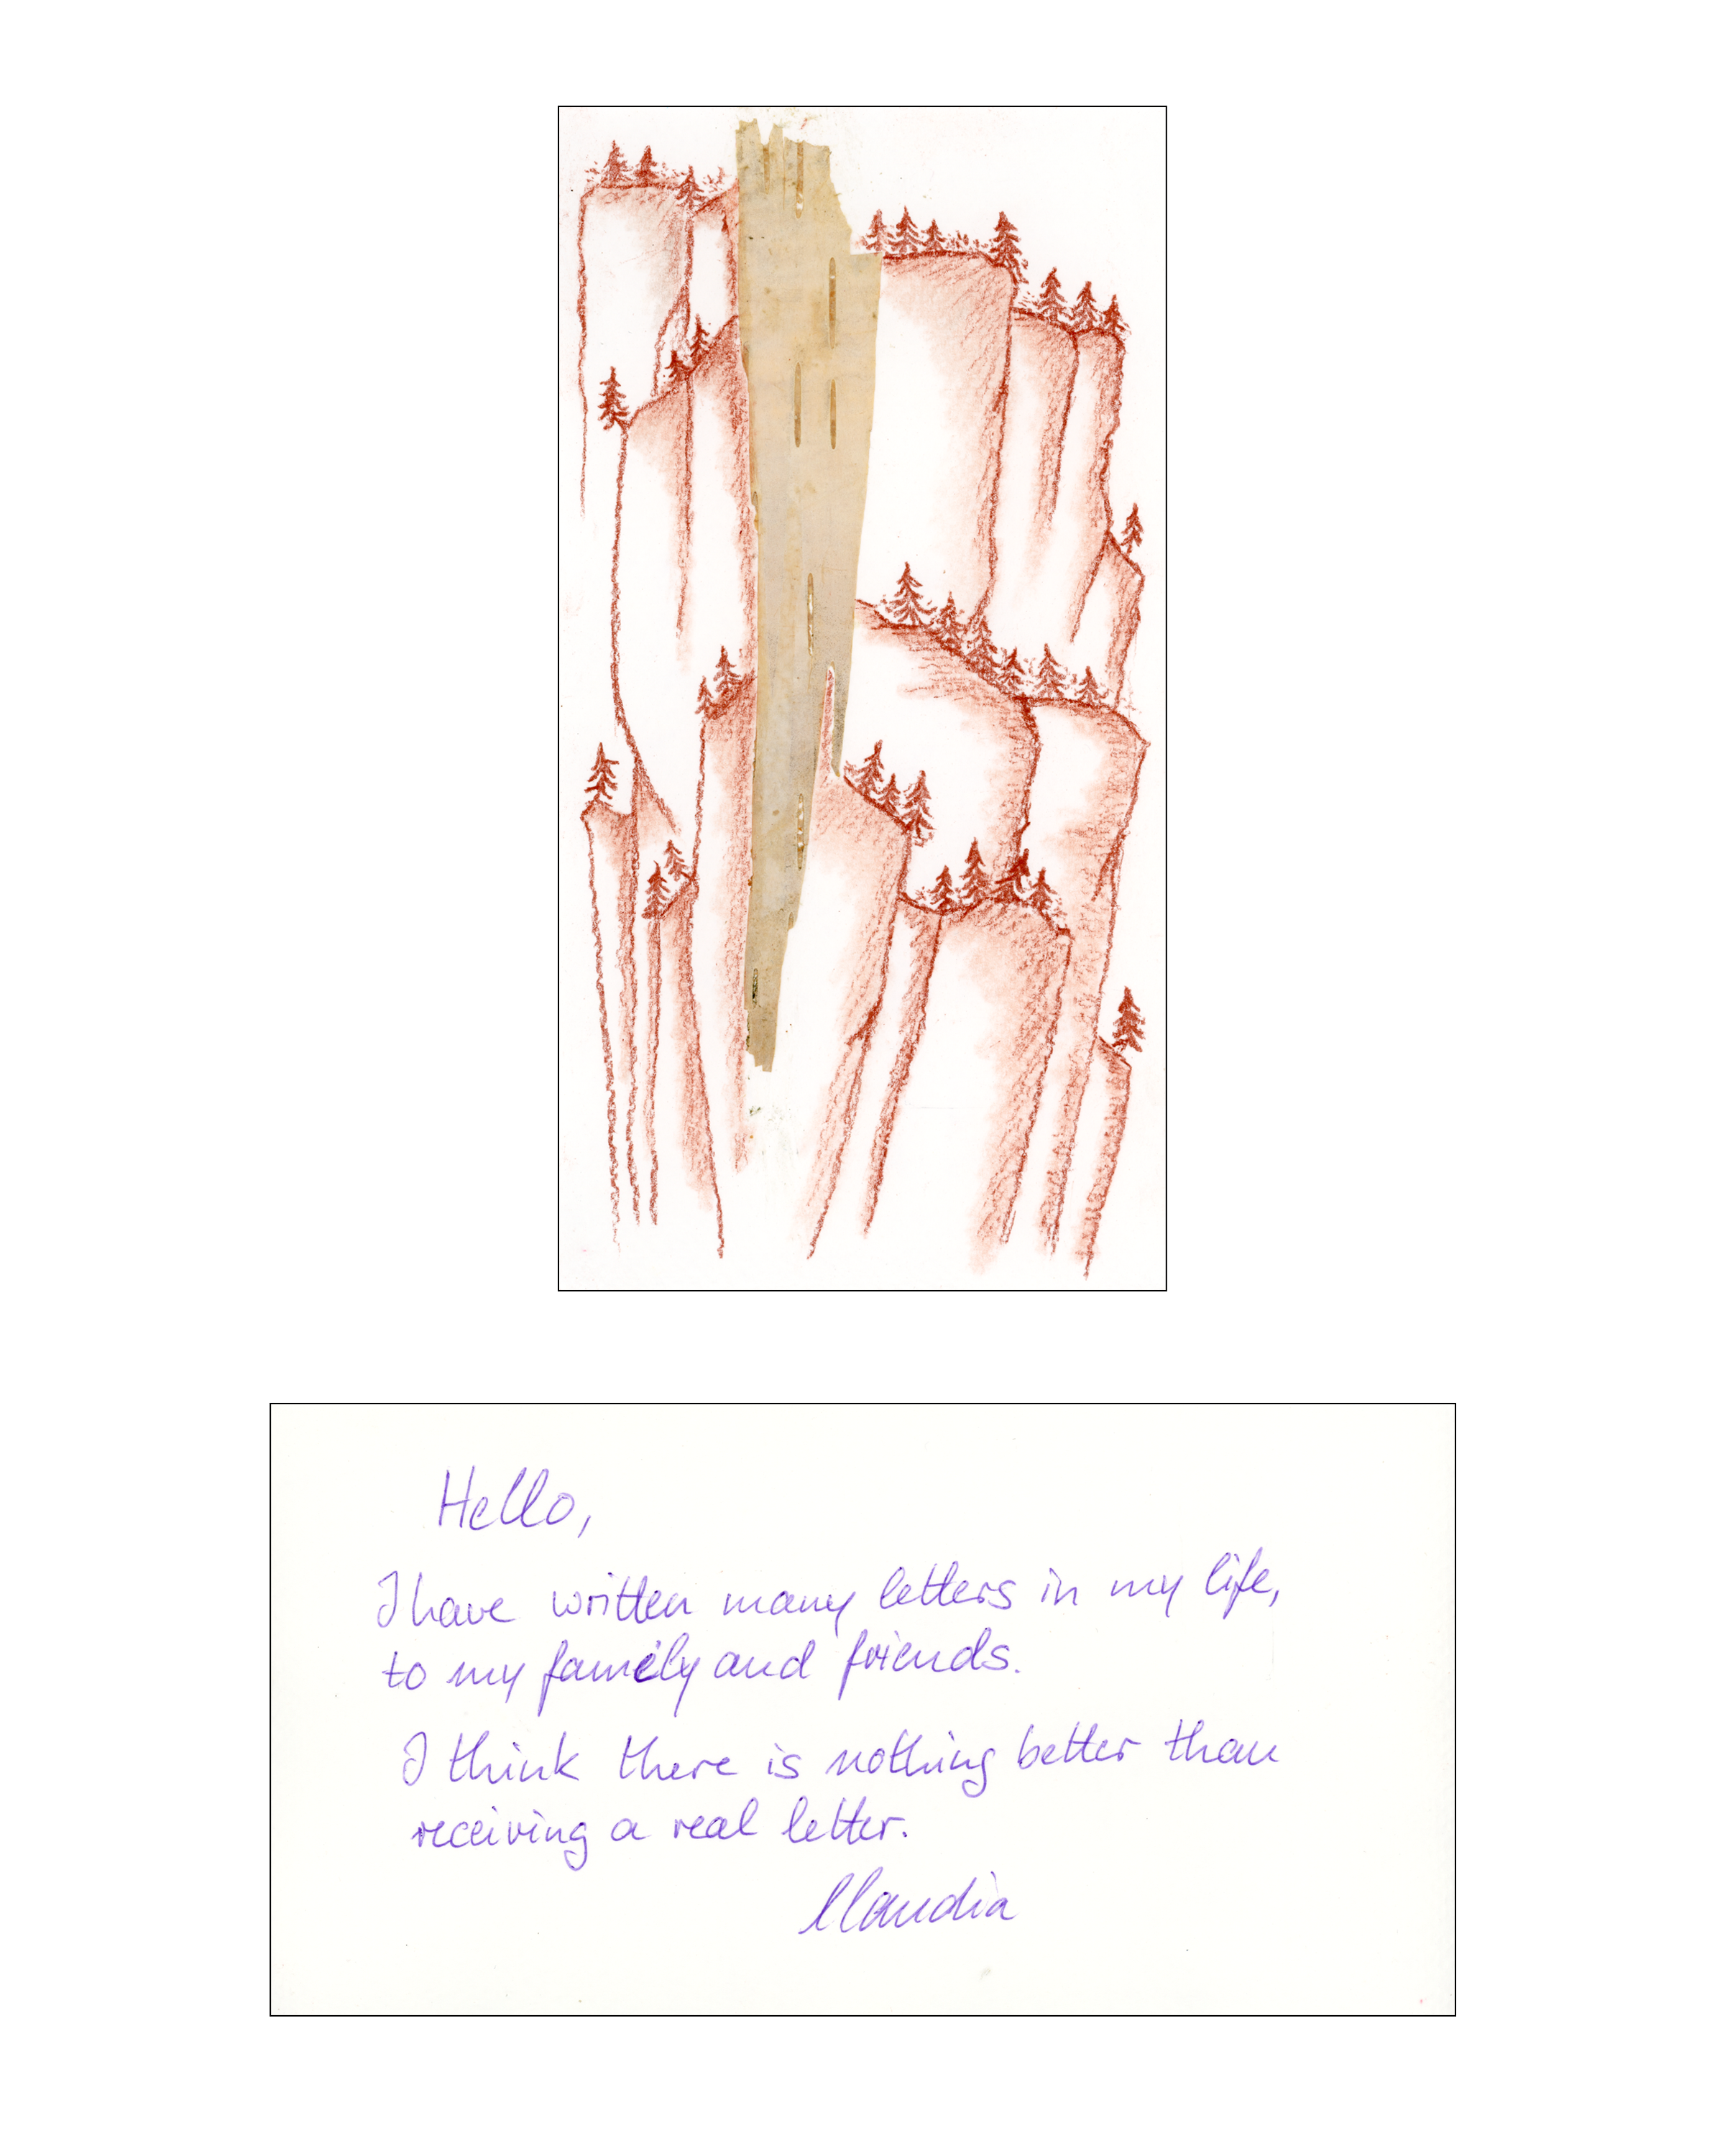 Hello,
I have written many letters in my life,
to my family and friends.
I think there is nothing better than
receiving a real letter.
Claudia